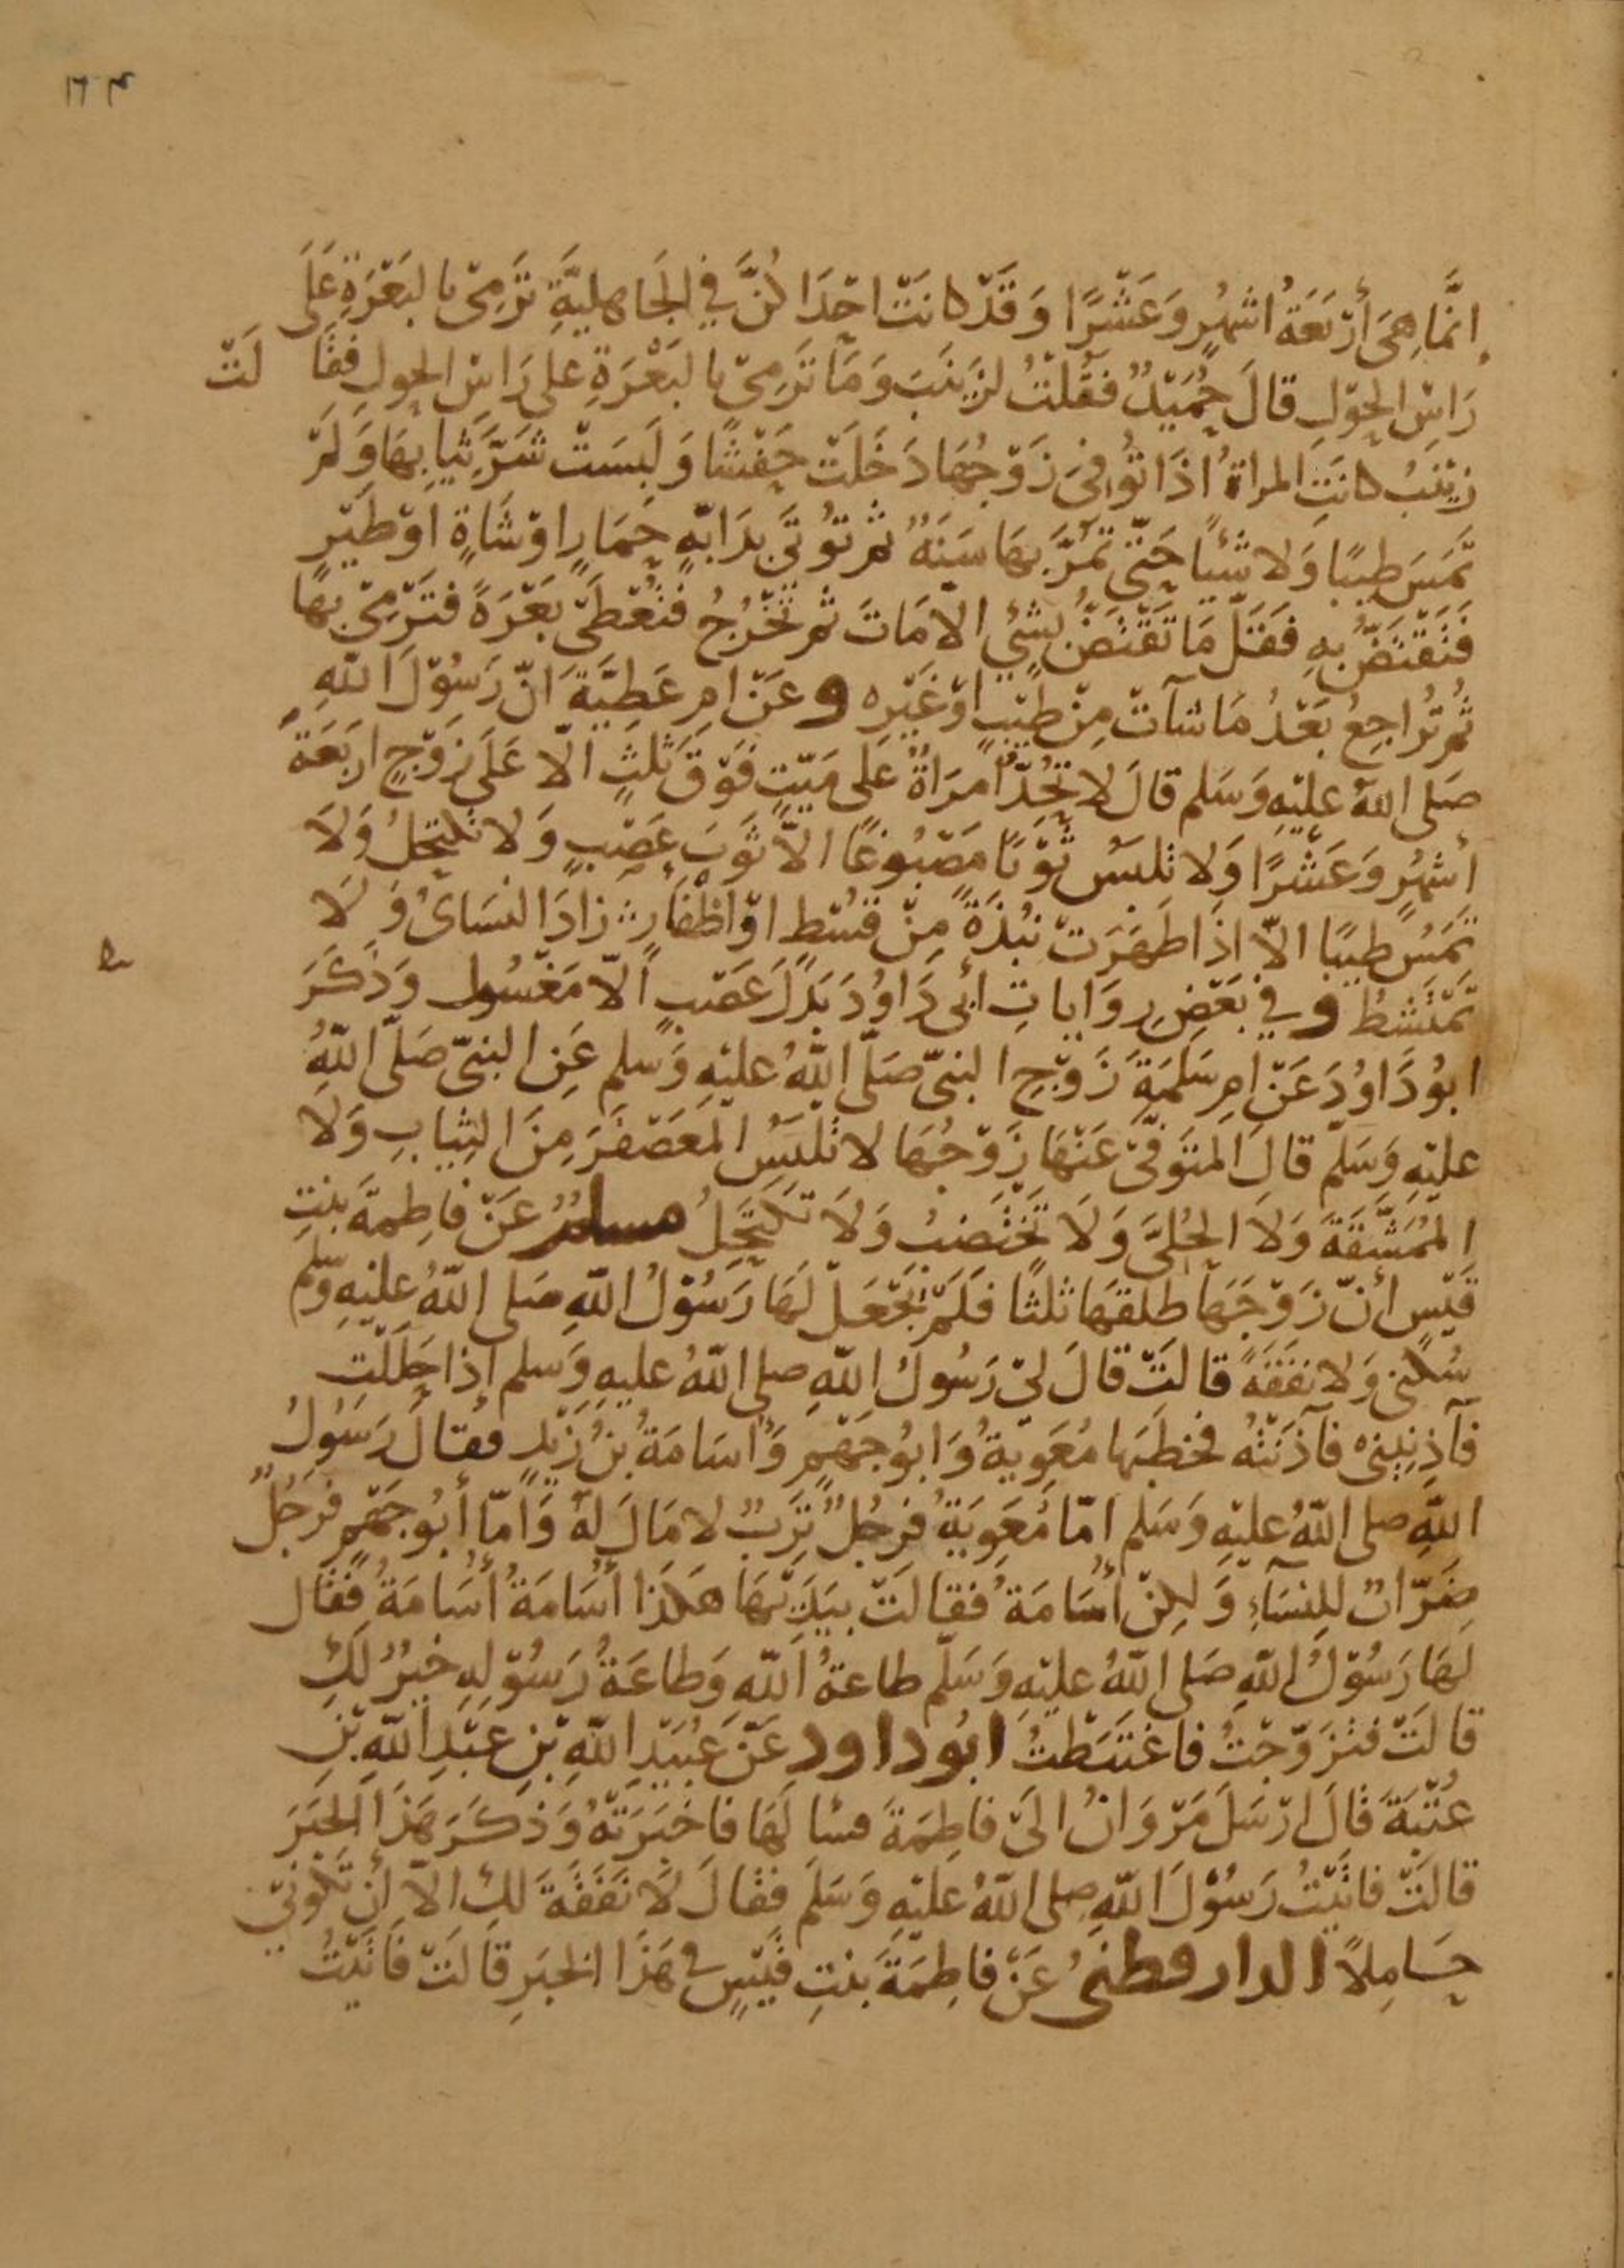 ١٦٣
إِنَّمَا هِىَ أَرْبَعَةُ أَشْهُرٍ وَعَشْرًا وَقَدْ كانَتْ احْدَاكُنَّ فِي الْجَاهِليَّةِ تَرْمِىْ بالبَعْرَةِ عَلَى
رَاسِ الحَوْلِ قَالَ حُمَيْدٌ فَقُلْتُ لِزَيْنَبَ وَمَا تَرْمِىْ بالبَعْرَةِ على رَاسِ الحول فقالَتْ
زَيْنَبُ كانَتِ المراةُ اذَا تُوُفِىَ زَوْجُهَا دَخَلَتْ حِفْشًا وَلَبِسَتْ شَرَّ ثِيَابِهَا وَلَمْ
تَمَسَّ طِيبًا وَلا شَيْئًا حَتّى تَمُرَّ بِهَا سَنَةٌ ثم تُوْتَى بِدَابّةٍ حِمَارٍ اوْ شَاةٍ اوْ طَيْرٍ
فَتَقْتَضُّ بِهِ فَقَلَّ مَا تَقْتَضُّ بِشَئٍ الا مَاتَ ثم تَخْرُجُ فتُعْطَى بَعْرَةً فَتَرْمِىْ بهَا
ثُم تُرَاجِعُ بَعْدُ مَا شآتْ مِنْ طِيْبٍ اوْ غَيْرِهِ وعَنْ امِ عَطِيَّةَ انّ رَسُوْلَ اللهِ
صَلى اللهُ عليْهِ وَسَلم قالَ لا تُحِدُّ امْرَاةٌ عَلى مَيّتٍ فَوْقَ ثَلثٍ الّا عَلى زَوْجٍ ارْبَعَةَ
أشهُرٍ وَعَشْرًا وَلا تلبَسُ ثَوْبًا مَصْبُوغًا الاّ ثَوْبَ عَصْبٍ وَلا تكتحِلُ وَلا
تَمَسُّ طِيبًا الاّ اذَا طَهُرَتْ نبْذَةً مِنْ قُسْطٍ اوْ اظْفَارٍ زادَ النسَائُ وَلا
تَمْتَشِطُ وفي بَعْضِ رِوَاياتِ أبى دَاوُدَ بَدَلَ عَصْبٍ الّا مَغْسُول وَذَكَرَ
ابوُدَاوُدَ عَنْ امِ سَلَمَةَ زَوْجِ النبىّ صَلّى اللهُ عليْهِ وَسَلم عَنِ النبىّ صَلّى اللهُ
عليْهِ وَسَلّم قالَ المتَوَفّى عَنْهَا زَوْجُهَا لا تلبَسُ المُعَصْفَرَ مِنَ الثِيابِ وَلا
المُمَشَّقَةَ وَلا الحُلىَّ وَلا تَخْتَضِبُ وَلا تكتَحِلُ مسلم عَنْ فاطِمةَ بنْتِ
قَيْسٍ أنّ زَوْجَهَا طلقهَا ثلثًا فَلَمْ يَجْعَلْ لَهَا رَسُوْلُ اللهِ صَلى اللهُ عليْهِ وَسلم
سُكنى وَلا نفَقَةً قالتْ قالَ لىْ رَسُولُ اللهِ صلى اللهُ عليهِ وَسلم إذا حَلَلْتِ
فآذِنِينِىْ فآذَنَتْهُ فخطَبَها مُعَوِيَةُ وَابوُجَهْمٍ وَأُسَامَةُ بنُ زَيْدٍ فقالَ رَسُولُ
اللهِ صلى اللهُ عليْهِ وَسَلم امّا مُعَوِيَةُ فرجُلٌ تَرِبٌ لا مَالَ لهُ وَأمّا أبُوجَهْمٍ فرَجُلٌ
ضَرّابٌ لِلنسَآءِ وَلكِنْ أُسَامَةُ فقالَتْ بيَدِهَا هكذا أُسَامَةُ أُسَامَةُ فقال
لهَا رَسُوْلُ اللهِ صَلى اللهُ عليْهِ وَسَلّم طاعةُ اللهِ وَطاعَةُ رَسُوْلِهِ خيرٌ لَكِ
قالتْ فتزَوّجْتُهُ فاغتَبَطْتُ ابُوداود عَنْ عُبَيْدِ اللهِ بْنِ عَبْدِ اللهِ بْنِ
عُتْبَةَ قالَ ارْسَلَ مَرْوَانُ الَى فاطِمَةَ فسَالَهَا فاخبَرَتْهُ وَذكَرَ هَذَا الخبَرَ
قالتْ فاتَيْتُ رَسُوْلَ اللهِ صلى اللهُ عليْهِ وَسَلم فقالَ لا نَفَقَةَ لَكِ الاّ أنْ تكونىْ
حَامِلًا الدارقطنى عَنْ فاطِمَةَ بنْتِ قيْسٍ فى هَذَا الخبَرِ قالَتْ فاتَيْتُ